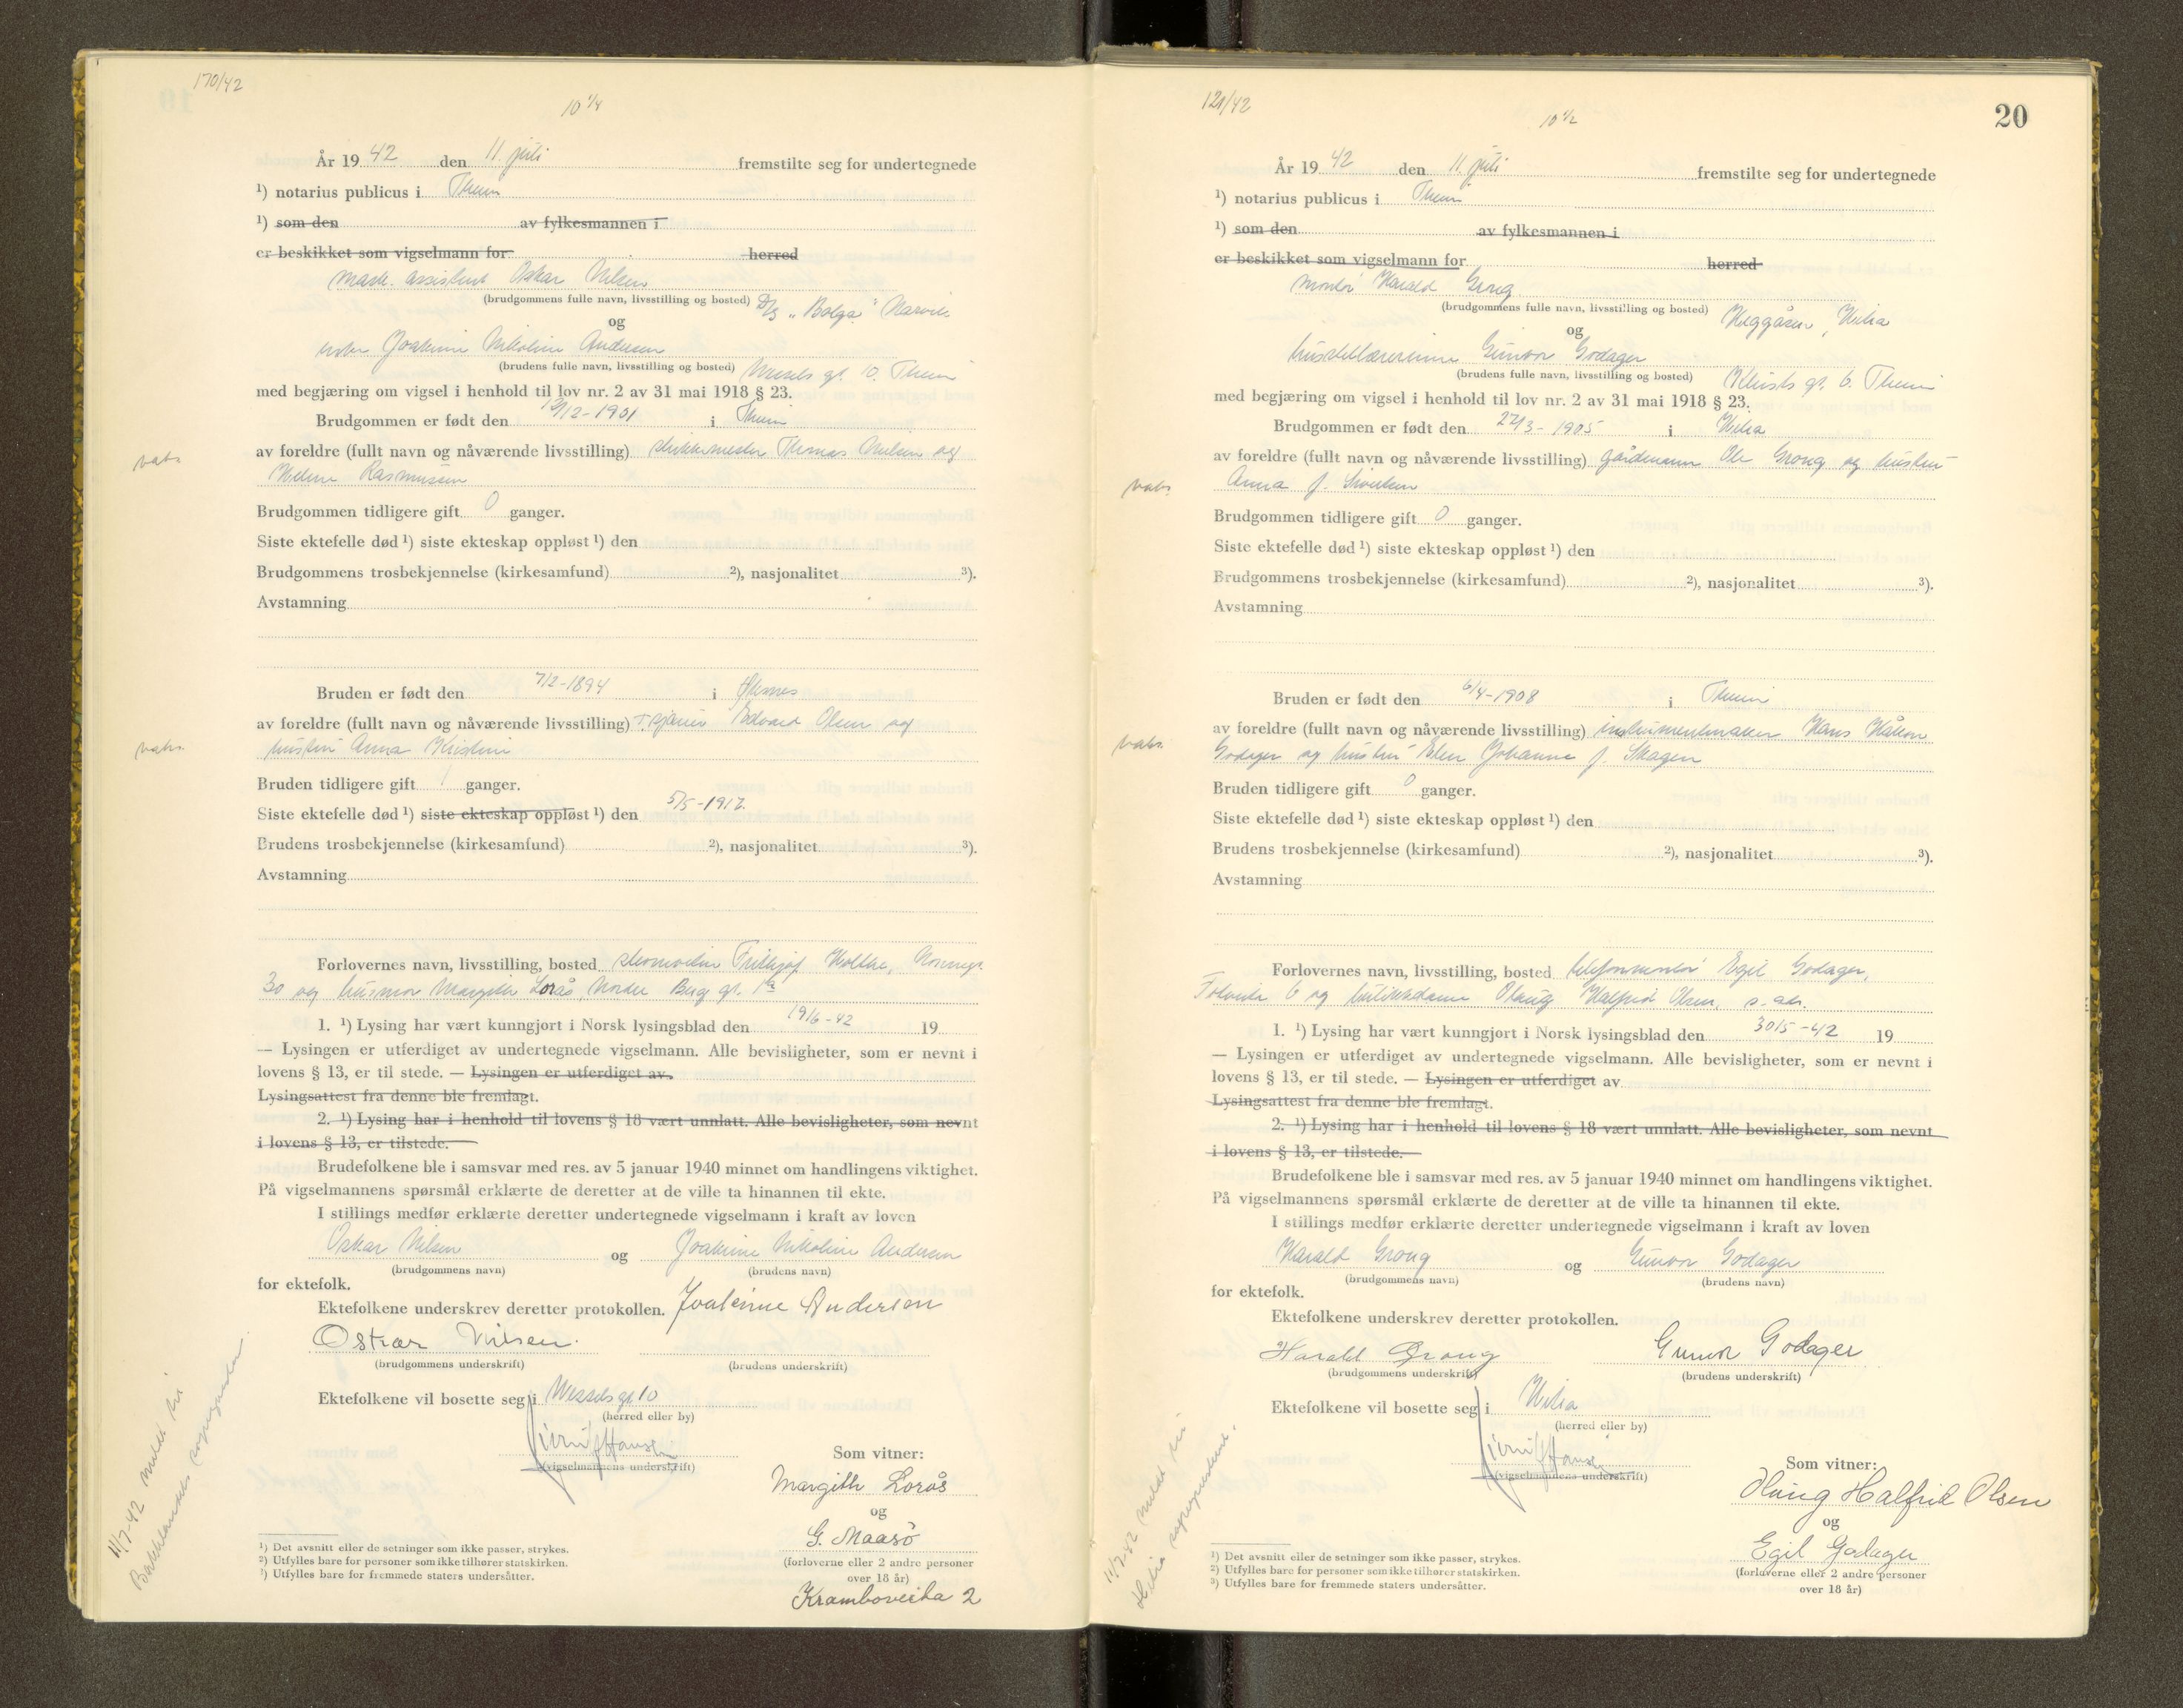 170/42
10 1/4
År 19 42 den 11. juli fremstilte seg for undertegnede
¹) notarius publicus i Thrun
¹) som den av fylkesmannen i
er beskikket som vigselmann for herred
mask. assistent Oskar Nilsen
(brudgommens fulle navn, livsstilling og bosted) D/S "Bolga" Narvik
og
Joakime Nikoline Andersen
(brudens fulle navn, livsstilling og bosted) Wessels gt. 10. Thrun
med begjæring om vigsel i henhold til lov nr. 2 av 31 mai 1918 § 23.
Brudgommen er født den /12-1901 i Thrun
av foreldre (fullt navn og nåværende livsstilling) Thomas Nielsen og
vabs.
Helene Rasmussen
Brudgommen tidligere gift 0 ganger.
Siste ektefelle død ¹) siste ekteskap oppløst ¹) den
Brudgommens trosbekjennelse (kirkesamfund) ²), nasjonalitet ³).
Avstamning
Bruden er født den 7/2-1894 i Hemnes
av foreldre (fullt navn og nåværende livsstilling) Edvard Olsen og
vabs.
hustru Anna Kristine
Bruden tidligere gift 1 ganger.
Siste ektefelle død ¹) siste ekteskap oppløst ¹) den 5/5-1917.
Brudens trosbekjennelse (kirkesamfund) ²), nasjonalitet ³).
Avstamning
Forlovernes navn, livsstilling, bosted Frithjof Holthe,
30 og husmor Margith Lorås, Nordre Berg gt. 1a
1. ¹) Lysing har vært kunngjort i Norsk lysingsblad den 19/6-42 19
— Lysingen er utferdiget av undertegnede vigselmann. Alle bevisligheter, som er nevnt i
lovens § 13, er til stede. — Lysingen er utferdiget av
Lysingsattest fra denne ble fremlagt.
2. ¹) Lysing har i henhold til lovens § 18 vært unnlatt. Alle bevisligheter, som nevnt
i lovens § 13, er tilstede.
Brudefolkene ble i samsvar med res. av 5 januar 1940 minnet om handlingens viktighet.
På vigselmannens spørsmål erklærte de deretter at de ville ta hinannen til ekte.
I stillings medfør erklærte deretter undertegnede vigselmann i kraft av loven
Oskar Nilsen og Joakime Nikoline Andersen
(brudgommens navn) (brudens navn)
for ektefolk.
Ektefolkene underskrev deretter protokollen. Joakime Andersen
Oskar Nilsen.
(brudgommens underskrift) (brudens underskrift)
Ektefolkene vil bosette seg i Wessels gt 10
(herred eller by)
(vigselmannens underskrift)
Som vitner:
Margith Lorås
og
G. Maasö
(forloverne eller 2 andre personer
over 18 år)
Kramboveita 2
¹) Det avsnitt eller de setninger som ikke passer, strykes.
²) Utfylles bare for personer som ikke tilhører statskirken.
³) Utfylles bare for fremmede staters undersåtter.
11/7-42 meldt til
Bakklandet sogneprest.
121/42
10 1/2
20
År 19 42 den 11. juli fremstilte seg for undertegnede
¹) notarius publicus i Thrun
¹) som den av fylkesmannen i
er beskikket som vigselmann for herred
montør Harald Grong
(brudgommens fulle navn, livsstilling og bosted) Heggåsen, Hitra
og
husstellærerinne Gunvor Godager
(brudens fulle navn, livsstilling og bosted) gt. 6. Thrun
med begjæring om vigsel i henhold til lov nr. 2 av 31 mai 1918 § 23.
Brudgommen er født den 22/3-1905 i Hitra
av foreldre (fullt navn og nåværende livsstilling) gårdmann Ole Grong og hustru
vabs.
Anna f. Sivertsen
Brudgommen tidligere gift 0 ganger.
Siste ektefelle død ¹) siste ekteskap oppløst ¹) den
Brudgommens trosbekjennelse (kirkesamfund) ²), nasjonalitet ³).
Avstamning
Bruden er født den 6/4-1908 i Thrun
av foreldre (fullt navn og nåværende livsstilling) instrumentmaker Hans Håkon
vabs.
Godager og hustru Elen Johanna f. Skagen
Bruden tidligere gift 0 ganger.
Siste ektefelle død ¹) siste ekteskap oppløst ¹) den
Brudens trosbekjennelse (kirkesamfund) ²), nasjonalitet ³).
Avstamning
Forlovernes navn, livsstilling, bosted telefonmontør Egil Godager,
6 og butikkdame Olaug Halfrid Olsen, s. adr.
1. ¹) Lysing har vært kunngjort i Norsk lysingsblad den 30/5-42 19
— Lysingen er utferdiget av undertegnede vigselmann. Alle bevisligheter, som er nevnt i
lovens § 13, er til stede. — Lysingen er utferdiget av
Lysingsattest fra denne ble fremlagt.
2. ¹) Lysing har i henhold til lovens § 18 vært unnlatt. Alle bevisligheter, som nevnt
i lovens § 13, er tilstede.
Brudefolkene ble i samsvar med res. av 5 januar 1940 minnet om handlingens viktighet.
På vigselmannens spørsmål erklærte de deretter at de ville ta hinannen til ekte.
I stillings medfør erklærte deretter undertegnede vigselmann i kraft av loven
Harald Grong og Gunvor Godager
(brudgommens navn) (brudens navn)
for ektefolk.
Ektefolkene underskrev deretter protokollen.
Harald Grong Gunvor Godager
(brudgommens underskrift) (brudens underskrift)
Ektefolkene vil bosette seg i Hitra
(herred eller by)
(vigselmannens underskrift)
Som vitner:
Olaug Halfrid Olsen
og
Egil Godager
(forloverne eller 2 andre personer
over 18 år)
¹) Det avsnitt eller de setninger som ikke passer, strykes.
²) Utfylles bare for personer som ikke tilhører statskirken.
³) Utfylles bare for fremmede staters undersåtter.
11/7-42 meldt til
Hitra sogneprest.